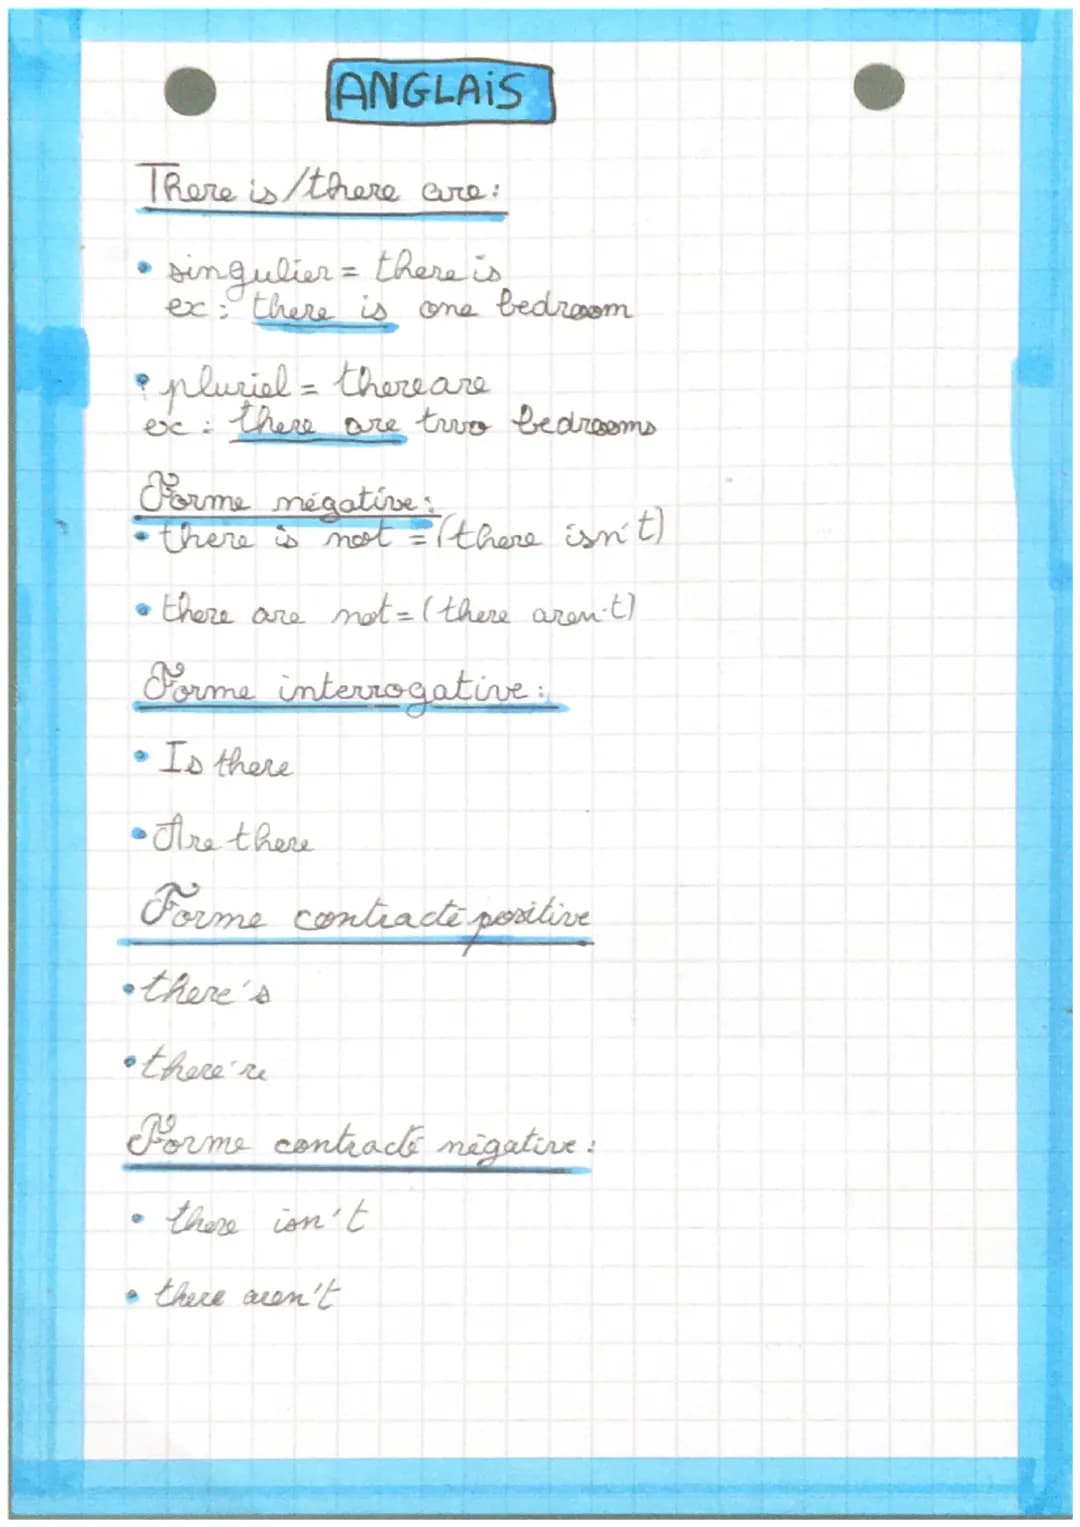 ANGLAiS
There is/there are:
• singulier = there is
ex: there is one bedroom
• pluriel = there are
ex: there are two bedrooms
Forme négative:
• there is not = (there isn't)
• there are not = (there aren't)
Forme interrogative:
• Is there
• Are there
Forme contracté positive
• there's
• there're
Forme contracté négative:
• there isn't
• there aren't